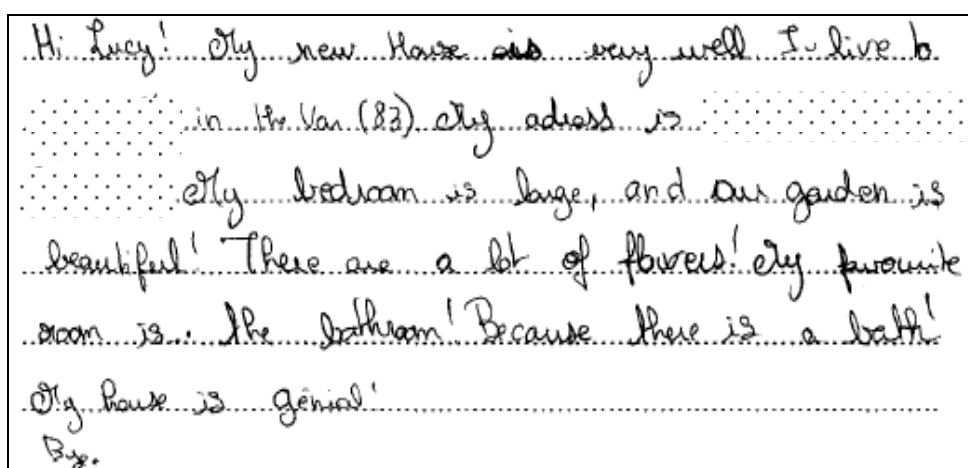 Hi Lucy! My new House is very well I live
in the Var (83) My adress is
My bedroom is large, and our garden is
beautiful! There are a lot of flowers! My favourite
room is.. the bathroom! Because there is a bath!
My house is génial!
Bye.